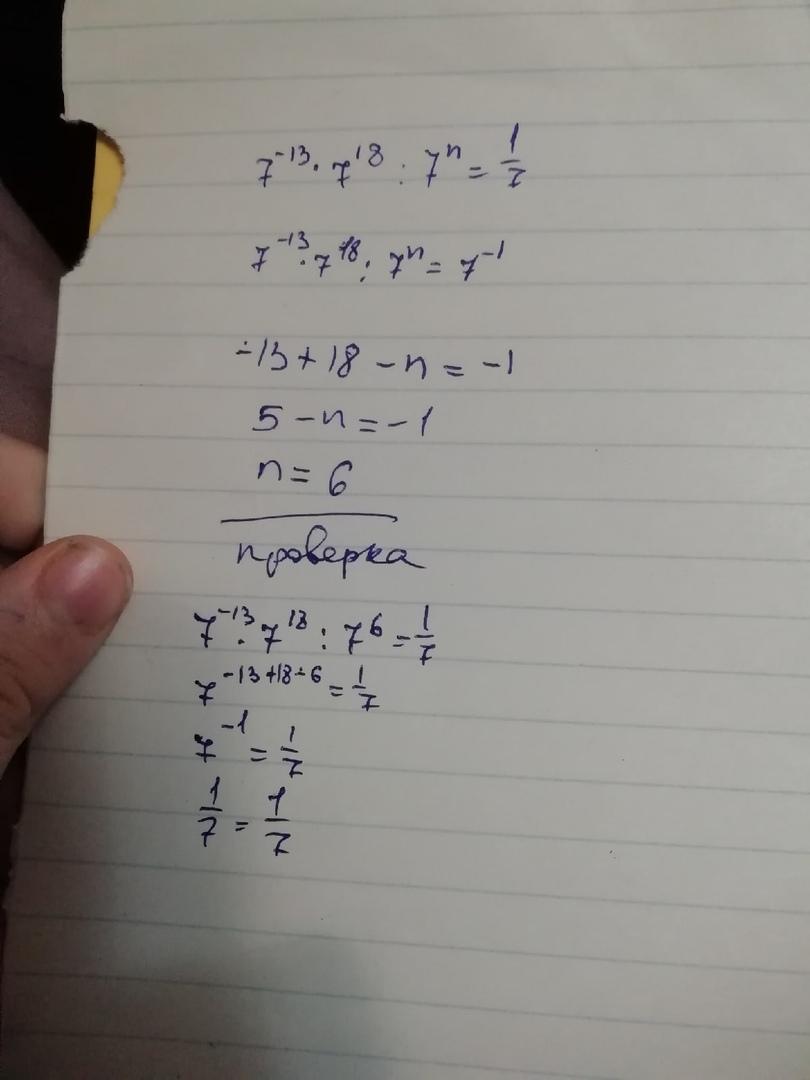 7⁻¹³ · 7¹⁸ : 7ⁿ = 1/7
7⁻¹³ · 7¹⁸ : 7ⁿ = 7⁻¹
-13 + 18 - n = -1
5 - n = -1
n = 6
проверка
7⁻¹³ · 7¹⁸ : 7⁶ = 1/7
7⁻¹³⁺¹⁸⁻⁶ = 1/7
7⁻¹ = 1/7
1/7 = 1/7